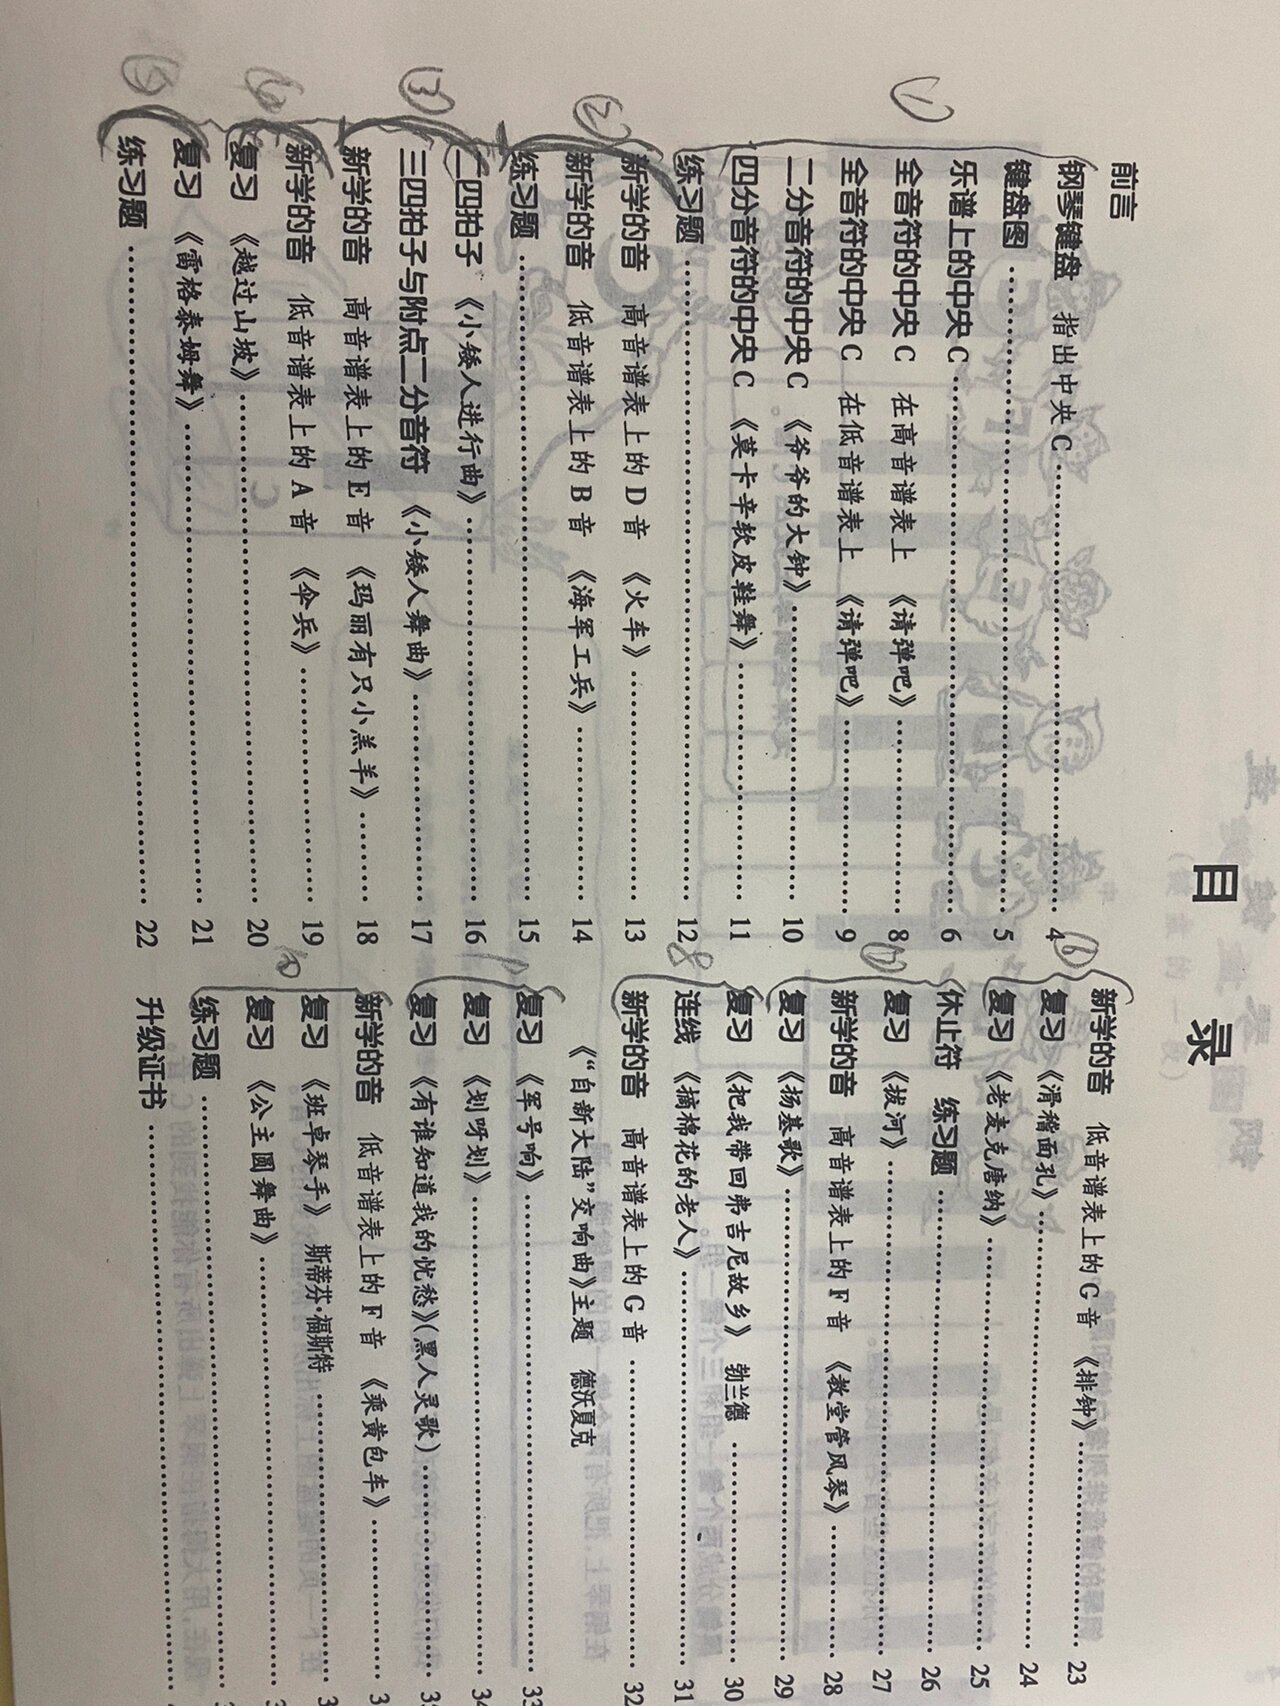 目 录
前言
钢琴键盘 指出中央C 4
键盘图 5
乐谱上的中央C 6
全音符的中央C 在高音谱表上 《请弹吧》 8
全音符的中央C 在低音谱表上 《请弹吧》 9
二分音符的中央C 《爷爷的大钟》 10
四分音符的中央C 《莫卡辛软皮鞋舞》 11
练习题 12
新学的音 高音谱表上的D音 《火车》 13
新学的音 低音谱表上的B音 《海军工兵》 14
练习题 15
二四拍子 《小矮人进行曲》 16
三四拍子与附点二分音符 《小矮人舞曲》 17
新学的音 高音谱表上的E音 《玛丽有只小羔羊》 18
新学的音 低音谱表上的A音 《伞兵》 19
复习 《越过山坡》 20
复习 《雷格泰姆舞》 21
练习题 22
① ② ③ ④ ⑤
新学的音 低音谱表上的G音 《排钟》 23
复习 《滑稽面孔》 24
复习 《老麦克唐纳》 25
休止符 练习题 26
复习 《拔河》 27
新学的音 高音谱表上的F音 《教堂管风琴》 28
复习 《扬基歌》 29
复习 《把我带回弗吉尼故乡》 勃兰德 30
连线 《摘棉花的老人》 31
新学的音 高音谱表上的G音 32
《“自新大陆”交响曲》主题 德沃夏克
复习 《军号响》 33
复习 《划呀划》 34
复习 《有谁知道我的忧愁》（黑人灵歌）
新学的音 低音谱表上的F音 《乘黄包车》
复习 《班卓琴手》 斯蒂芬·福斯特
复习 《公主圆舞曲》
练习题
升级证书
⑥ ⑦ 8